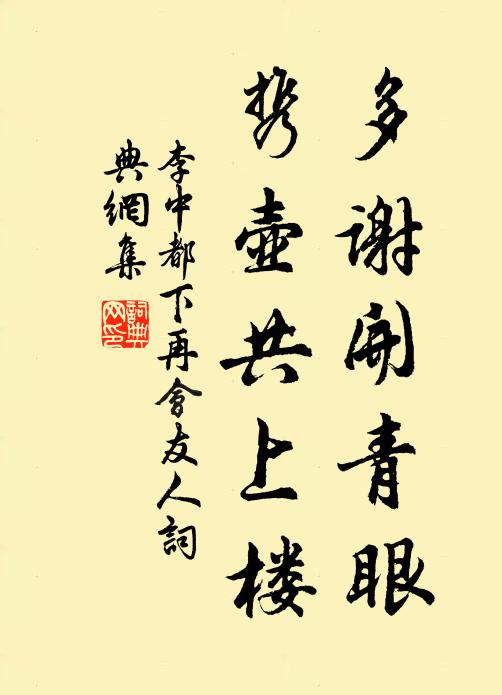 多谢开青眼
携壶共上楼
李中都下再會友人詞
典網集
詞典
网印